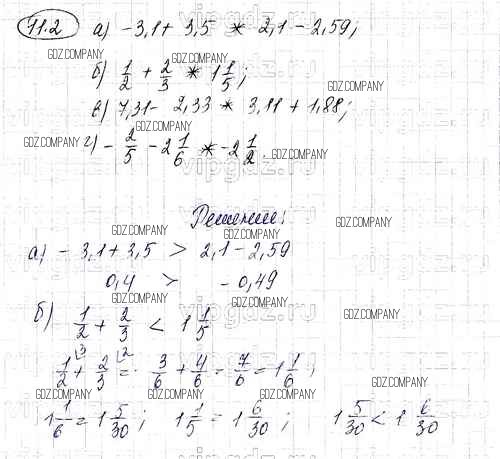 11.2 а) -3,1 + 3,5 * 2,1 - 2,59;
б) 1/2 + 2/3 * 1 1/5;
в) 7,31 - 2,33 * 3,11 + 1,88;
г) - 2/5 - 2 1/6 * -2 1/2.
Решение:
а) -3,1 + 3,5 > 2,1 - 2,59
0,4 > -0,49
б) 1/2 + 2/3 < 1 1/5
1/2 + 2/3 = 3/6 + 4/6 = 7/6 = 1 1/6;
1 1/6 = 1 5/30; 1 1/5 = 1 6/30; 1 5/30 < 1 6/30